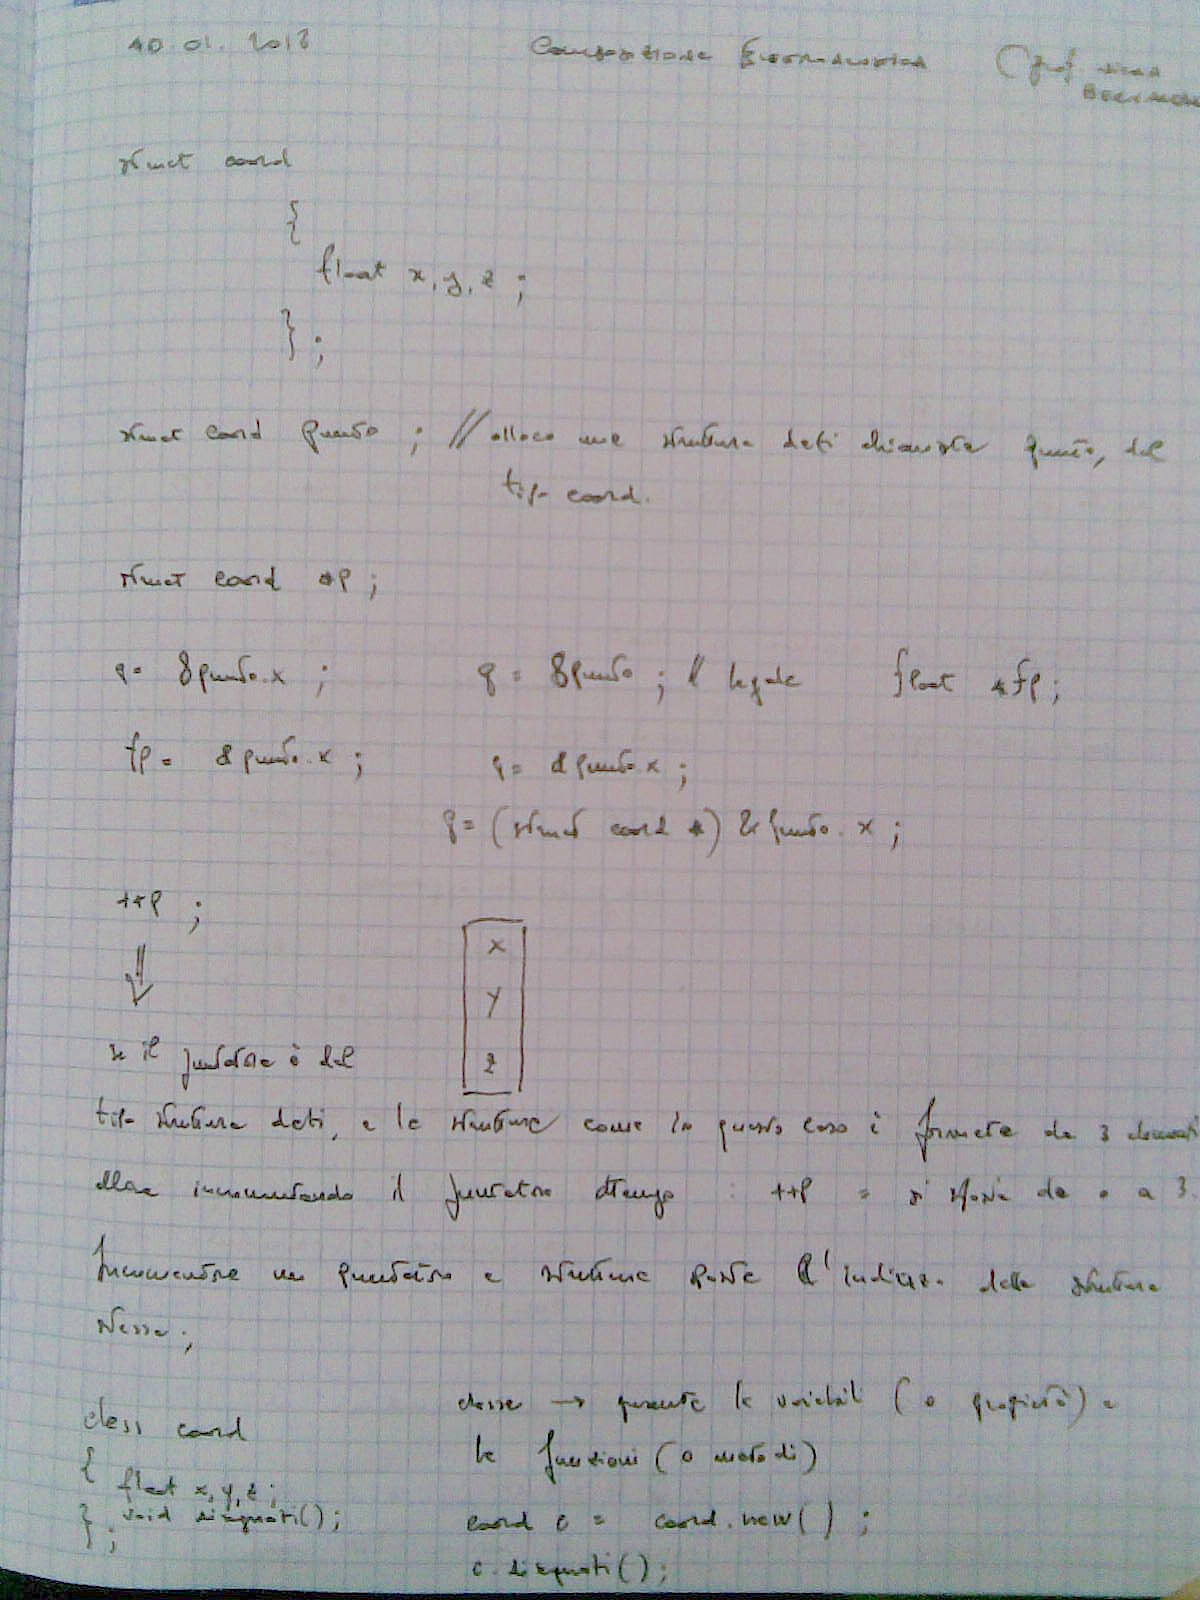 10.01.2013 Composizione Elettroacustica (Prof.
struct coord
{
float x, y, z ;
} ;
struct coord punto ; // alloco una struttura dati chiamata punto, del
tipo coord.
struct coord *p ;
p = &punto.x ; p = &punto ; // legale float *fp ;
fp = &punto.x ; p = &punto.x ;
p = (struct coord *) &punto.x ;
++p ;
x
y
z
se il puntatore è del
tipo struttura dati, e la struttura come in questo caso è formata da 3 elementi
allora incrementando il puntatore ottengo : ++p = si sposta da 0 a 3.
Incrementare un puntatore a struttura sposta l'indirizzo della struttura
stessa ;
class coord
{
float x, y, z ;
void disegnati() ;
} ;
classe → presenta le variabili (o proprietà) e
le funzioni (o metodi)
coord c = coord.new() ;
c.disegnati() ;